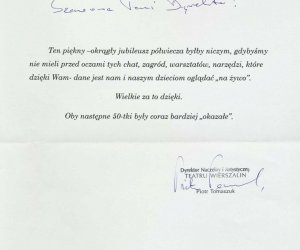 Szanowna Pani Dyrektor!
Ten piękny –okrągły jubileusz półwiecza byłby niczym, gdybyśmy
nie mieli przed oczami tych chat, zagród, warsztatów, narzędzi, które
dzięki Wam- dane jest nam i naszym dzieciom oglądać „na żywo”.
Wielkie za to dzięki.
Oby następne 50-tki były coraz bardziej „okazałe”.
Dyrektor Naczelny i Artystyczny
TEATRU WIERSZALIN
Piotr Tomaszuk